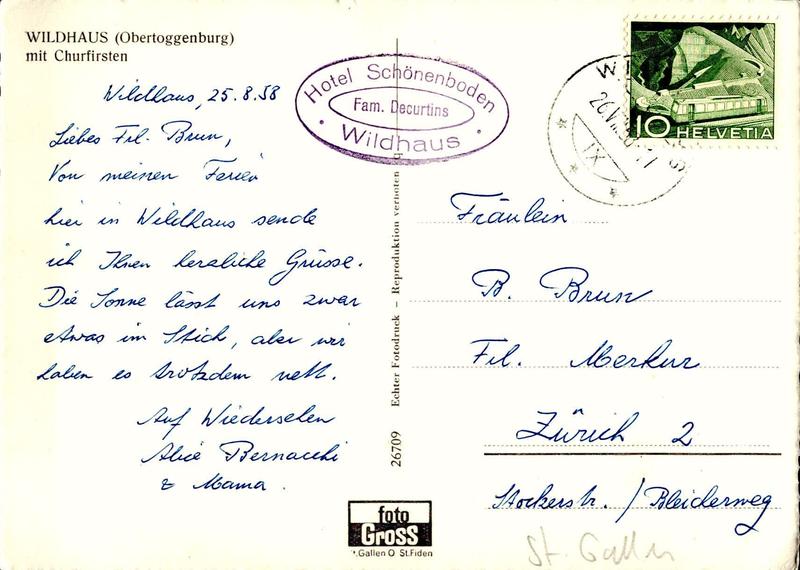 WILDHAUS (Obertoggenburg)
mit Churfirsten
Wildhaus, 25.8.58
Liebes Frl. Brun,
Von meinen Ferien
hier in Wildhaus sende
ich Ihnen herzliche Grüsse.
Die Sonne lässt uns zwar
etwas im Stich, aber wir
haben es trotzdem nett.
Auf Wiedersehen
Alice Bernacchi
& Mama.
Hotel Schönenboden
Fam. Decurtins
· Wildhaus ·
26709 Echter Fotodruck – Reproduktion verboten
foto
GROSS
St.Gallen O St.Fiden
10 HELVETIA
IX
Fräulein
B. Brun
Fil. Merkur
Zürich 2
Stockerstr. / Bleicherweg
St. Gallen